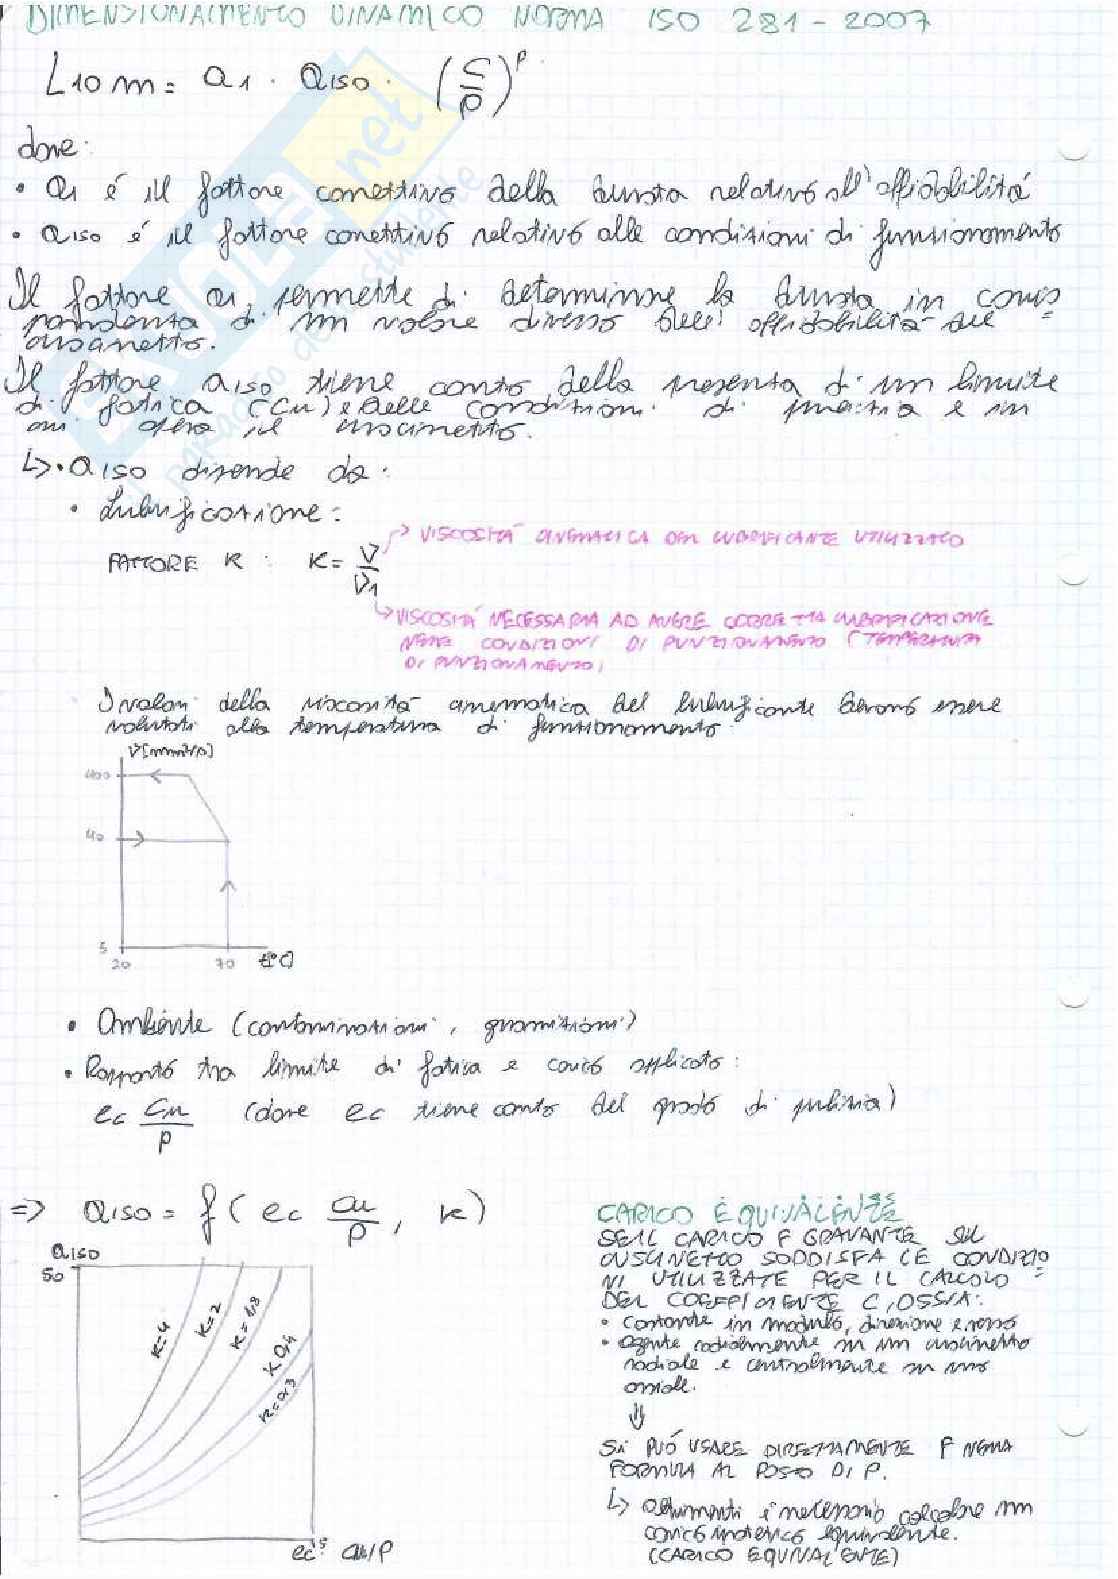 DIMENSIONAMENTO DINAMICO NORMA ISO 281-2007
L10m = a1 · aISO · (C/P)^p
dove:
• a1 é il fattore correttivo della durata relativo all'affidabilitá
• aISO é il fattore correttivo relativo alle condizioni di funzionamento
Il fattore a1, permette di determinare la durata in corris
pondenza di un valore diverso dell'affidabilitá del
cuscinetto.
Il fattore aISO tiene conto della presenza di un limite
di fatica (Cu) e delle condizioni di pulizia e in
cui opera il cuscinetto.
↳ • aISO dipende da:
• Lubrificazione:
FATTORE K : K = ν/ν1
→ VISCOSITÁ CINEMATICA DEL LUBRIFICANTE UTILIZZATO
↳ VISCOSITÁ NECESSARIA AD AVERE CORRETTA LUBRIFICAZIONE
NELLE CONDIZIONI DI FUNZIONAMENTO (TEMPERATURA
DI FUNZIONAMENTO)
I valori della viscositá cinematica del lubrificante devono essere
valutati alla temperatura di funzionamento.
ν[mm²/s]
400
40
5
20 70 t[°C]
• Ambiente (contaminazioni, guarnizioni)
• Rapporto tra limite di fatica e carico applicato:
ec Cu/P (dove ec tiene conto del grado di pulizia)
=> aISO = f( ec Cu/P, K)
aISO
50
K=4
K=2
K=0,8
K 0,4
K=0,3
ec· Cu/P
CARICO EQUIVALENTE
SE IL CARICO F GRAVANTE SUL
CUSCINETTO SODDISFA LE CONDIZIO
NI UTILIZZATE PER IL CALCOLO
DEL COEFFICIENTE C, OSSIA:
• costante in modulo, direzione e verso
• agente radialmente su un cuscinetto
radiale e centralmente su uno
assiale.
⇓
SI PUÓ USARE DIRETTAMENTE F NELLA
FORMULA AL POSTO DI P.
↳ altrimenti é necessario calcolare un
carico ipotetico equivalente.
(CARICO EQUIVALENTE)